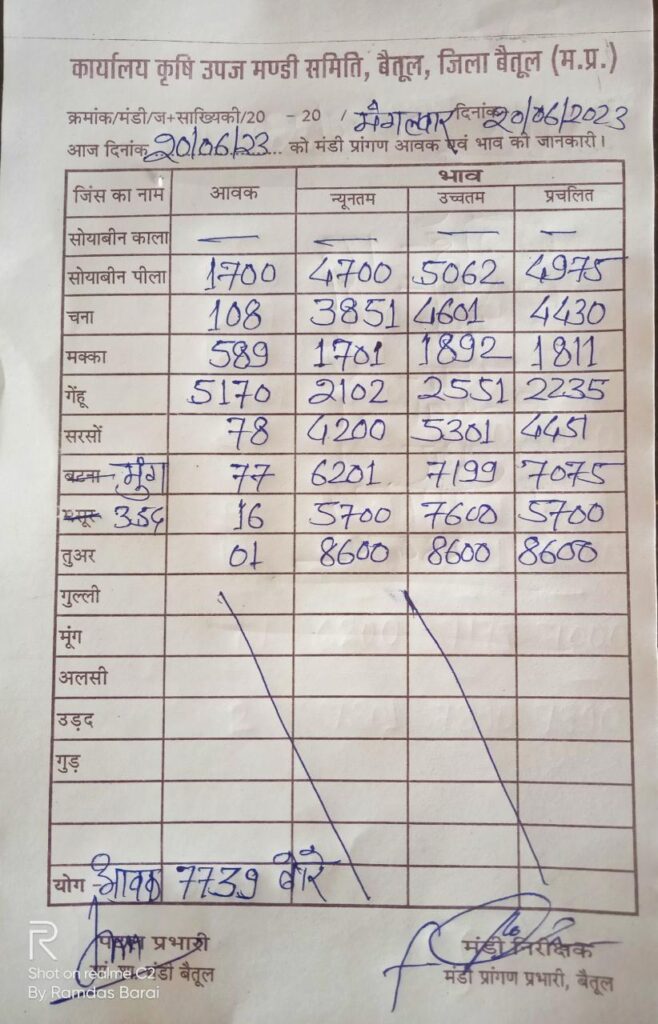 कार्यालय कृषि उपज मण्डी समिति, बैतूल, जिला बैतूल (म.प्र.)
क्रमांक/मंडी/ज+साख्यिकी/20 - 20 / मंगलवार दिनांक 20/06/2023
आज दिनांक 20/06/23 को मंडी प्रांगण आवक एवं भाव की जानकारी।
जिंस का नाम आवक भाव
न्यूनतम उच्चतम प्रचलित
सोयाबीन काला — — — —
सोयाबीन पीला 1700 4700 5062 4975
चना 108 3851 4601 4430
मक्का 589 1701 1892 1811
गेंहू 5170 2102 2551 2235
सरसों 78 4200 5301 4451
बटना मुंग 77 6201 7199 7075
मसूर उड़द 16 5700 7600 5700
तुअर 01 8600 8600 8600
गुल्ली
मूंग
अलसी
उड़द
गुड़
योग आवक 7739 बोरे
प्रभारी मंडी निरीक्षक
मंडी बैतूल मंडी प्रांगण प्रभारी, बैतूल
Shot on realme C2
By Ramdas Barai